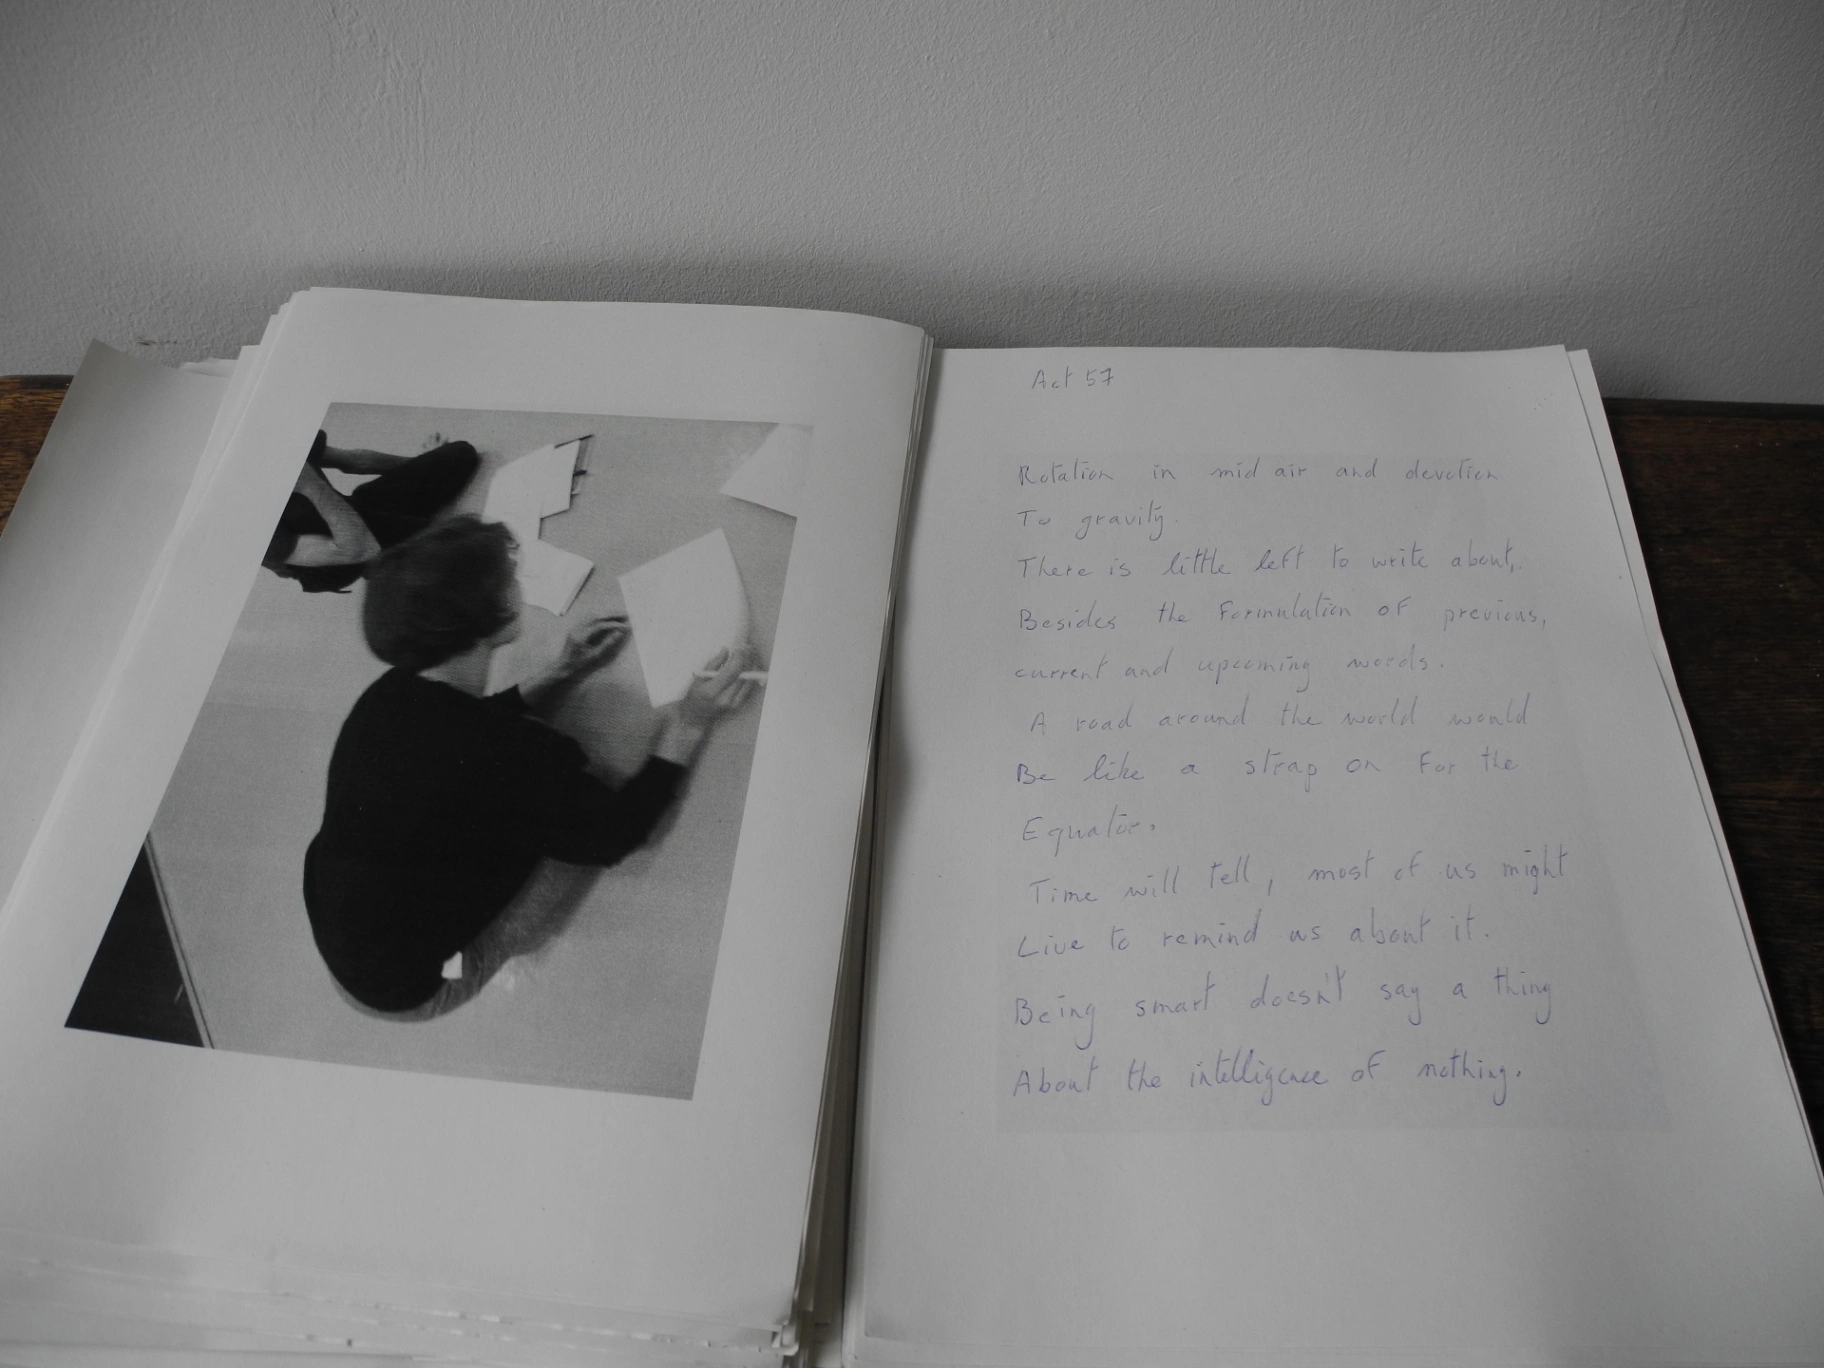 Act 57
Rotation in mid air and devotion
To gravity.
There is little left to write about,
Besides the Formulation of previous,
current and upcoming words.
A road around the world would
Be like a strap on For the
Equator.
Time will tell, most of us might
Live to remind us about it.
Being smart doesn't say a thing
About the intelligence of nothing.